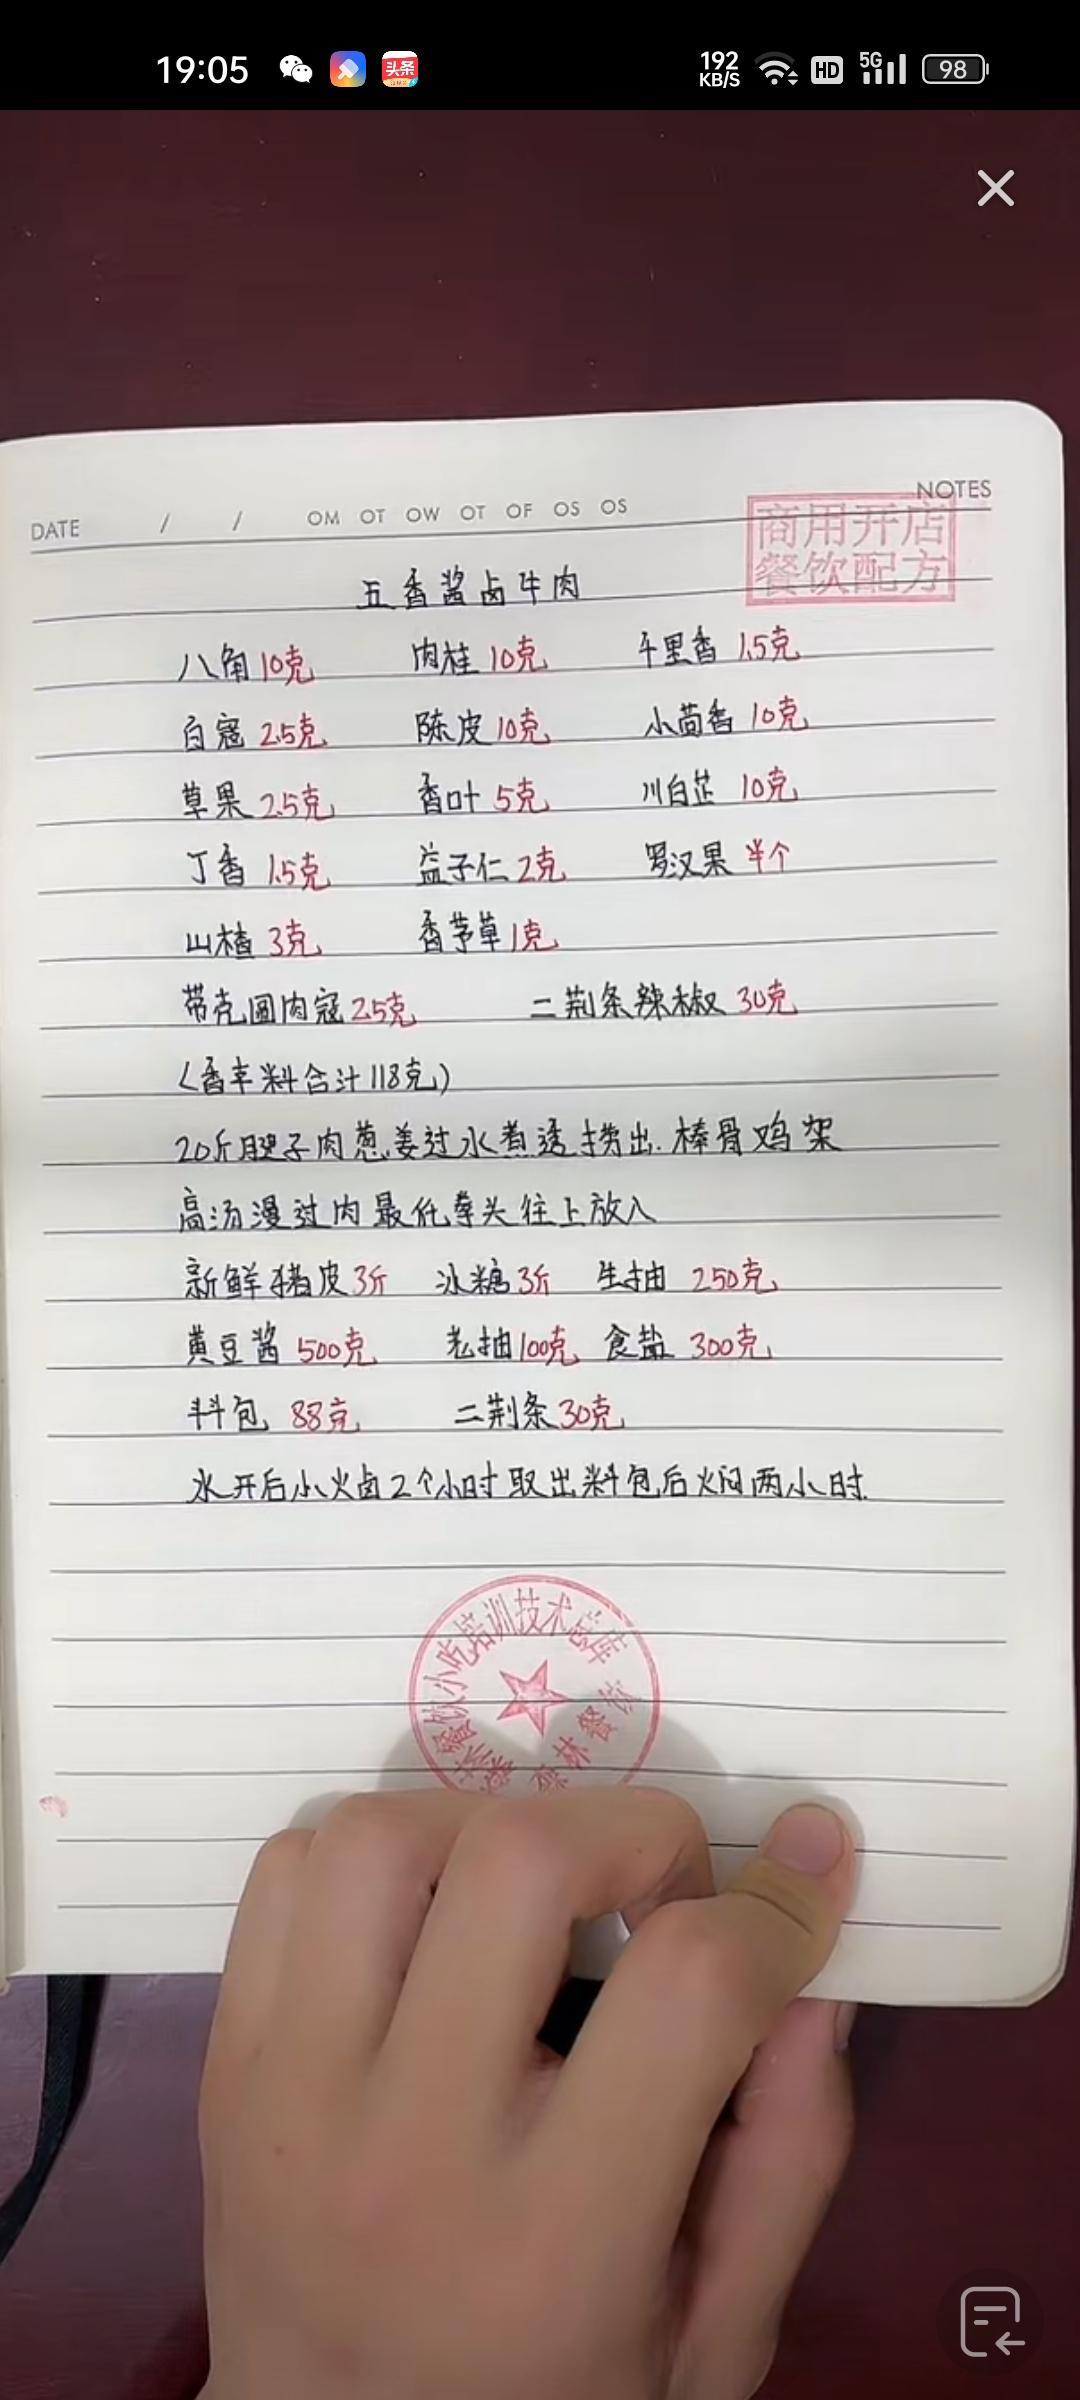 19:05 头条 192 KB/S HD 5G 98
NOTES
DATE / / OM OT OW OT OF OS OS
商用开店
餐饮配方
五香酱卤牛肉
八角10克 肉桂 10克 千里香 1.5克
白寇 2.5克 陈皮10克 小茴香 10克
草果 2.5克 香叶 5克 川白芷 10克
丁香 1.5克 益子仁 2克 罗汉果 半个
山楂 3克 香茅草 1克
带壳圆肉寇 25克 二荆条辣椒 30克
(香辛料合计118克)
20斤腱子肉葱姜过水煮透捞出.棒骨鸡架
高汤漫过肉最低拳头往上放入
新鲜猪皮3斤 冰糖3斤 生抽 250克
黄豆酱 500克 老抽100克 食盐 300克
料包 88克 二荆条30克
水开后小火卤2个小时取出料包后火焖两小时.
餐饮小吃培训技术总库
林餐饮